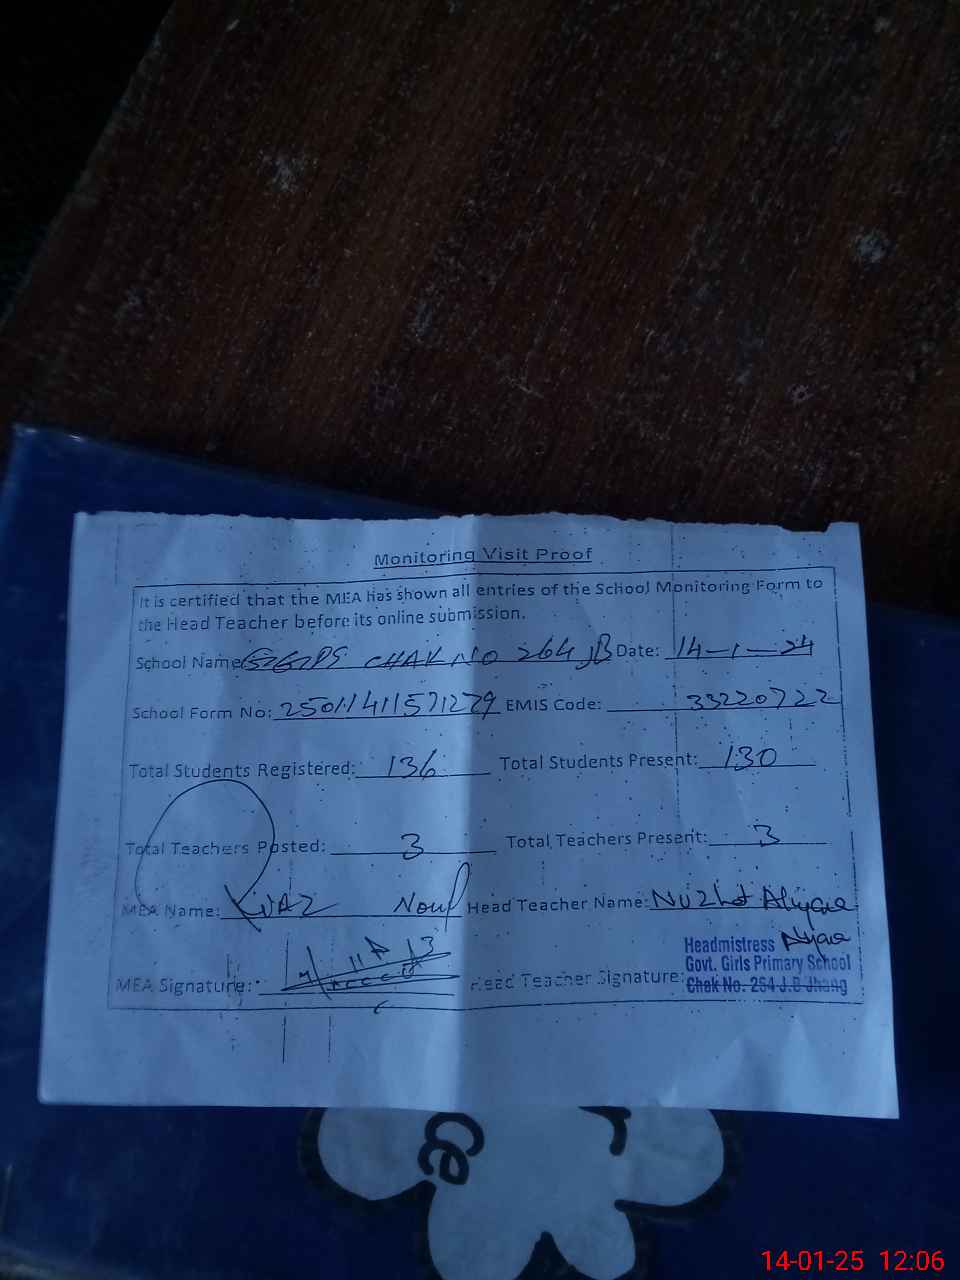 Monitoring Visit Proof
It is certified that the MEA has shown all entries of the School Monitoring Form to
the Head Teacher before its online submission.
School Name: GGPS CHAK NO 264 JB Date: 14-1-24
School Form No: 25011411571279 EMIS Code: 33220722
Total Students Registered: 136 Total Students Present: 130
Total Teachers Posted: 3 Total Teachers Present: 3
MEA Name: Head Teacher Name: Nuzhat
MEA Signature: Head Teacher Signature:
Headmistress
Govt. Girls Primary School
Chak No. 264 J.B Jhang
14-01-25 12:06